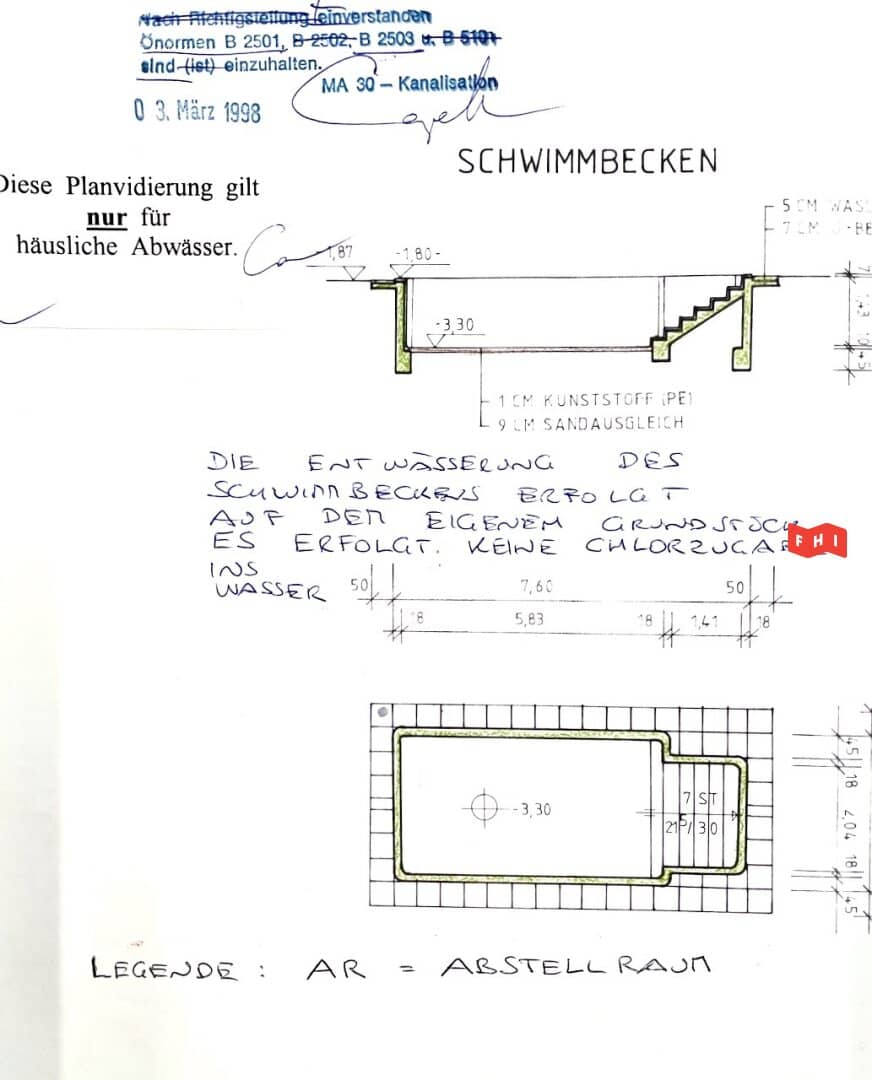 Nach Richtigstellung einverstanden
Önormen B 2501, B 2502, B 2503 u. B 5101
sind (ist) einzuhalten.
MA 30 – Kanalisation
0 3. März 1998
SCHWIMMBECKEN
Diese Planvidierung gilt
nur für
häusliche Abwässer.
5 CM WAS
7 CM
-BE
1,87
-1,80-
-3,30
1 CM KUNSTSTOFF (PE)
9 CM SANDAUSGLEICH
DIE ENTWÄSSERUNG DES
SCHWIMMBECKENS ERFOLGT
AUF DEM EIGENEM GRUNDSTÜCK
ES ERFOLGT. KEINE CHLORZUGA
FHI
INS
WASSER
50 7,60 50
18 5,83 18 1,41 18
-3,30
7 ST
21⁵/30
45 18 2,04 18 45
LEGENDE : AR = ABSTELLRAUM